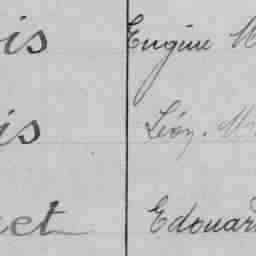 is Eugène M
is Léon. M
et Edouard